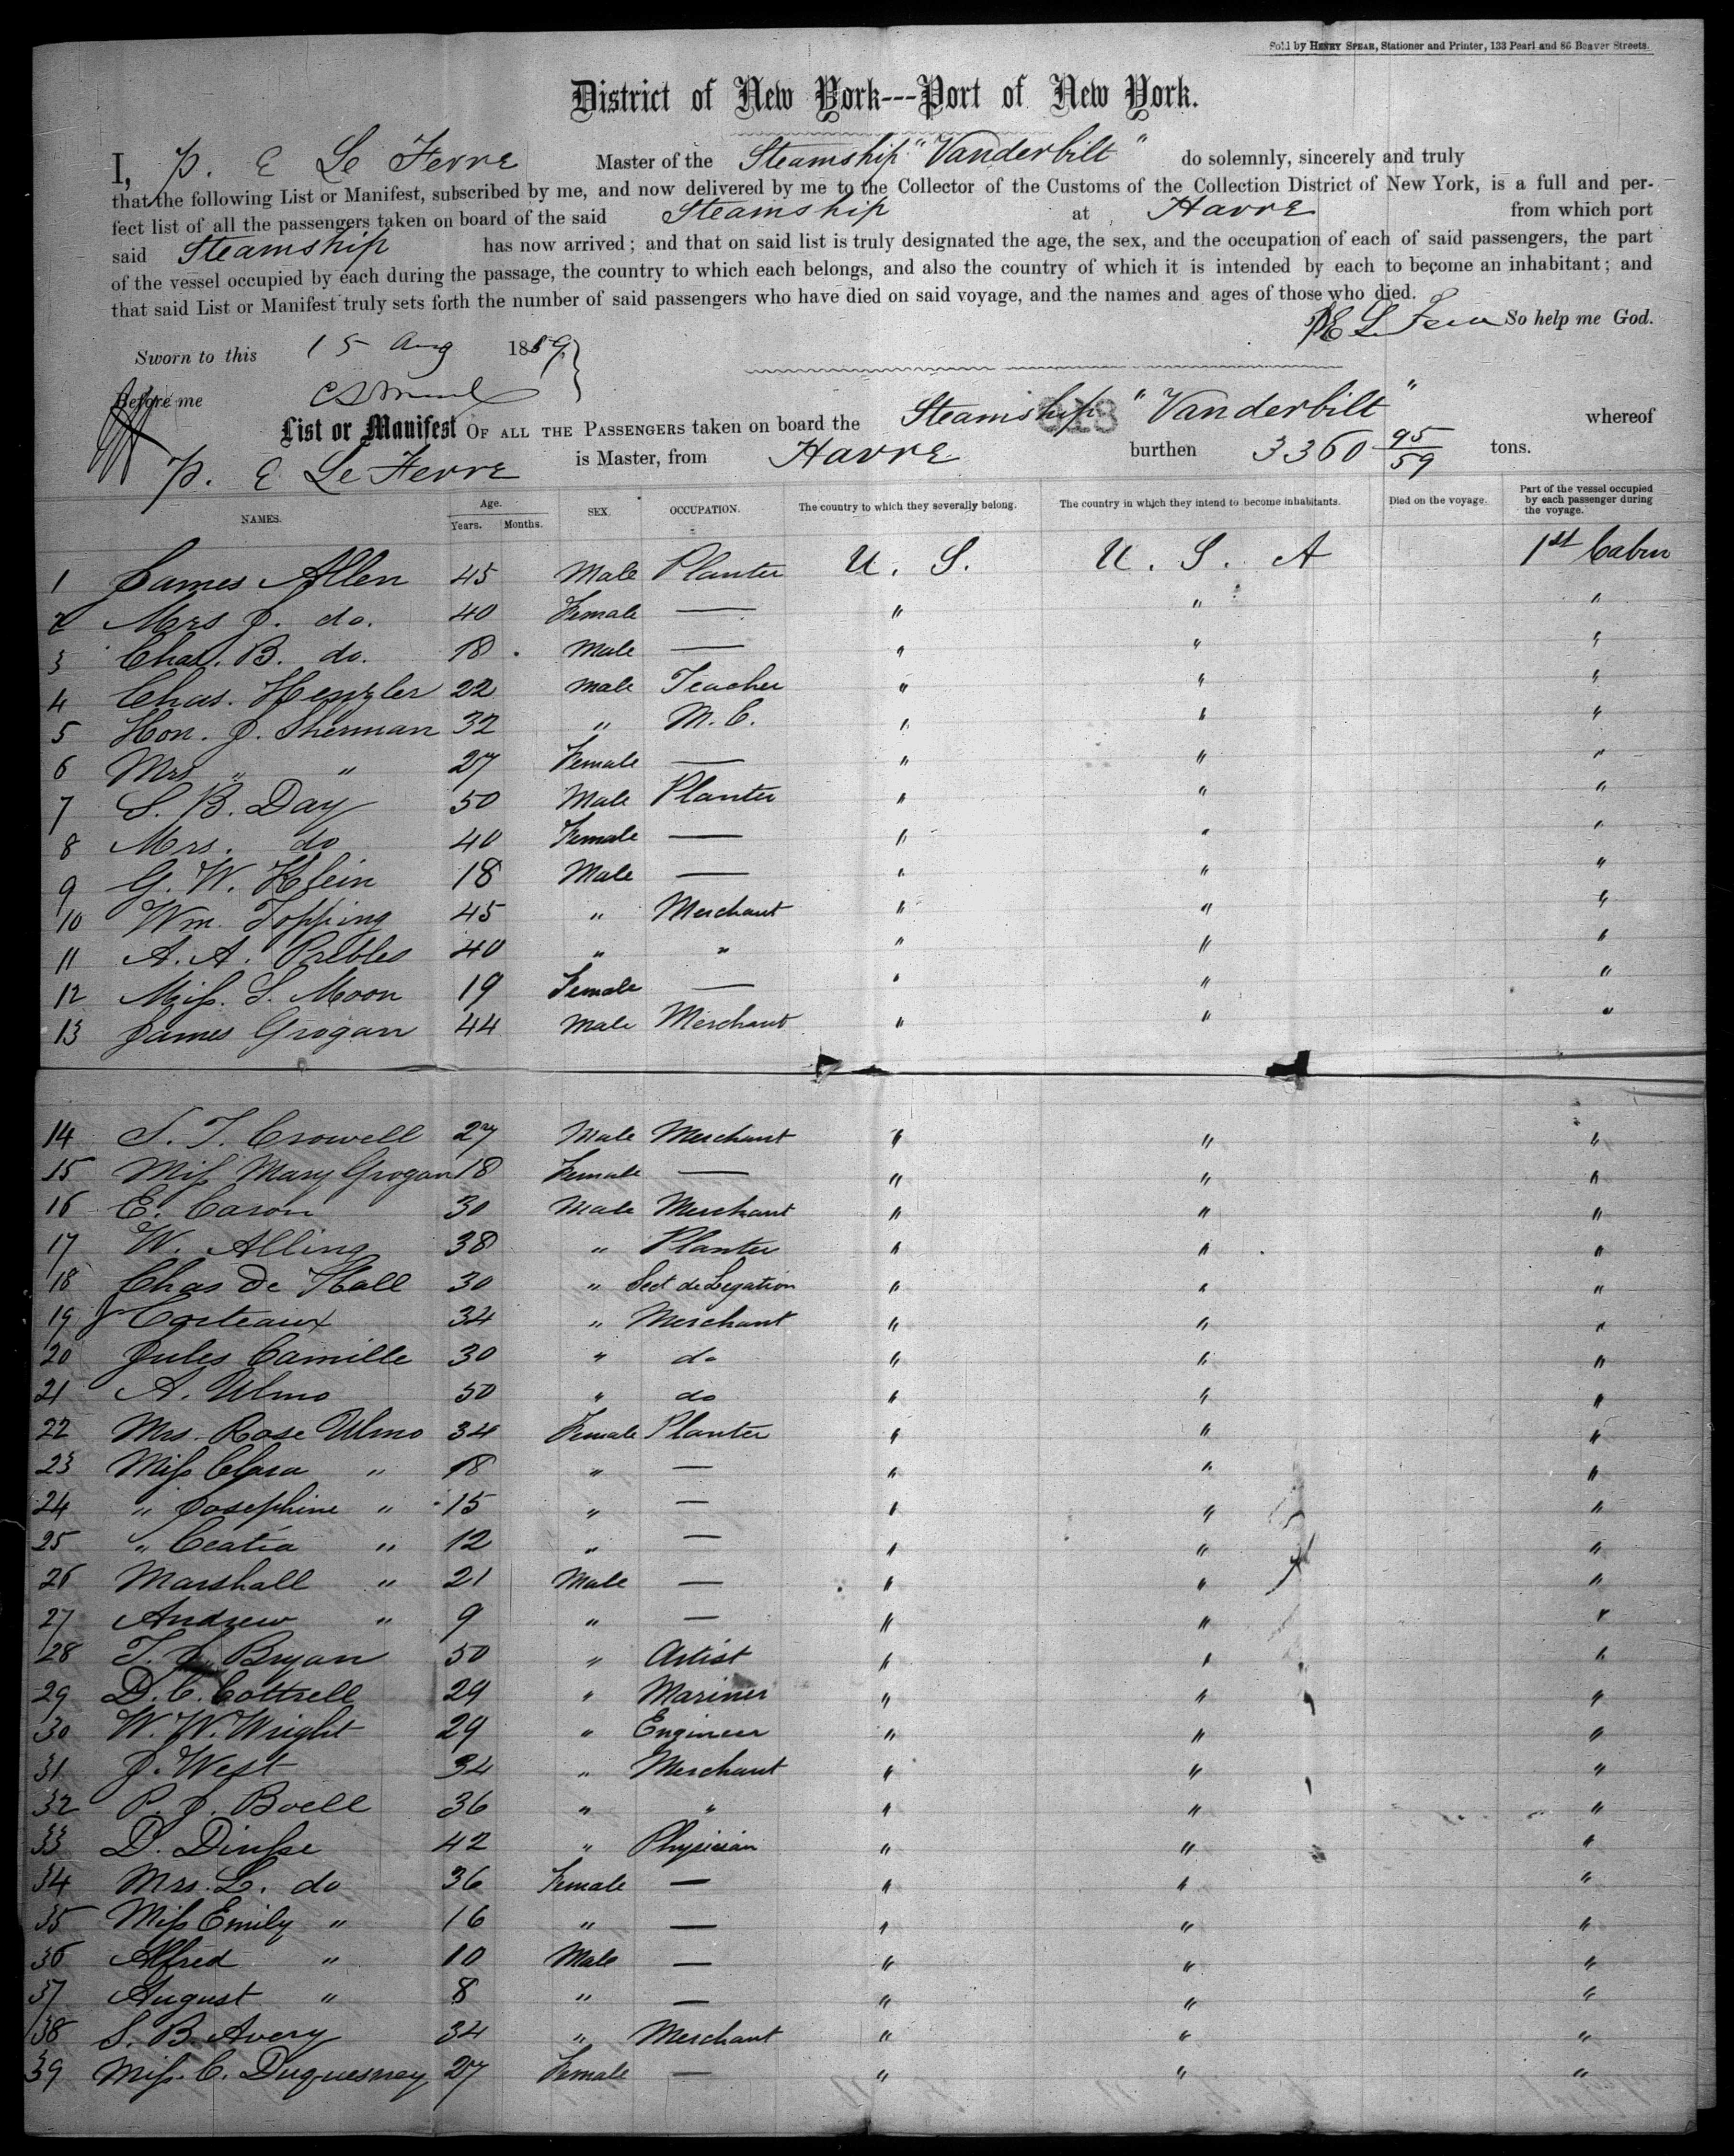 Sold by HENRY SPEAR, Stationer and Printer, 133 Pearl and 86 Beaver Streets.
District of New York---Port of New York.
I, P. E Le Fevre Master of the Steamship "Vanderbilt" do solemnly, sincerely and truly
that the following List or Manifest, subscribed by me, and now delivered by me to the Collector of the Customs of the Collection District of New York, is a full and per-
fect list of all the passengers taken on board of the said Steamship at Havre from which port
said Steamship has now arrived; and that on said list is truly designated the age, the sex, and the occupation of each of said passengers, the part
of the vessel occupied by each during the passage, the country to which each belongs, and also the country of which it is intended by each to become an inhabitant; and
that said List or Manifest truly sets forth the number of said passengers who have died on said voyage, and the names and ages of those who died.
P E Le Fevre So help me God.
Sworn to this 15 Aug 1859
Before me
List or Manifest OF ALL THE PASSENGERS taken on board the Steamship "Vanderbilt" whereof
P. E Le Fevre is Master, from Havre burthen 3360 95/59 tons.
NAMES. Age. Years. Months. SEX. OCCUPATION. The country to which they severally belong. The country in which they intend to become inhabitants. Died on the voyage. Part of the vessel occupied by each passenger during the voyage.
1 James Allen 45 Male Planter U. S. U. S. A 1st Cabin
2 Mrs J. do. 40 Female — " " "
3 Chas. B. do. 18 Male — " " "
4 Chas. Henzler 22 Male Teacher " " "
5 Hon. J. Sherman 32 " M. C. " " "
6 Mrs " " 27 Female — " " "
7 S. B. Day 50 Male Planter " " "
8 Mrs. do 40 Female — " " "
9 G. W. Klein 18 Male — " " "
10 Wm. Topping 45 " Merchant " " "
11 A. A. Peebles 40 " " " " "
12 Miss. S. Moon 19 Female — " " "
13 James Grogan 44 Male Merchant " " "
14 S. T. Crowell 27 Male Merchant " " "
15 Miss Mary Grogan 18 Female — " " "
16 E. Caron 30 Male Merchant " " "
17 W. Alling 38 " Planter " " "
18 Chas De Hall 30 " Sect de Legation " " "
19 J Corteaux 34 " Merchant " " "
20 Jules Camille 30 " do " " "
21 A. Ulmo 50 " do " " "
22 Mrs. Rose Ulmo 34 Female Planter " " "
23 Miss Clara " 18 " — " " "
24 " Josephine " 15 " — " " "
25 " Ceatia " 12 " — " " "
26 Marshall " 21 Male — " " "
27 Andrew " 9 " — " " "
28 T. J. Bryan 50 " Artist " " "
29 D. C. Cottrell 29 " Mariner " " "
30 W. W. Wright 29 " Engineer " " "
31 J. West 34 " Merchant " " "
32 P. J. Boell 36 " " " " "
33 D. Dinsse 42 " Physician " " "
34 Mrs. L. do 36 Female — " " "
35 Miss Emily " 16 " — " " "
36 Alfred " 10 Male — " " "
37 August " 8 " — " " "
38 S. B. Avery 34 " Merchant " " "
39 Miss. C. Duquesnay 27 Female — " " "